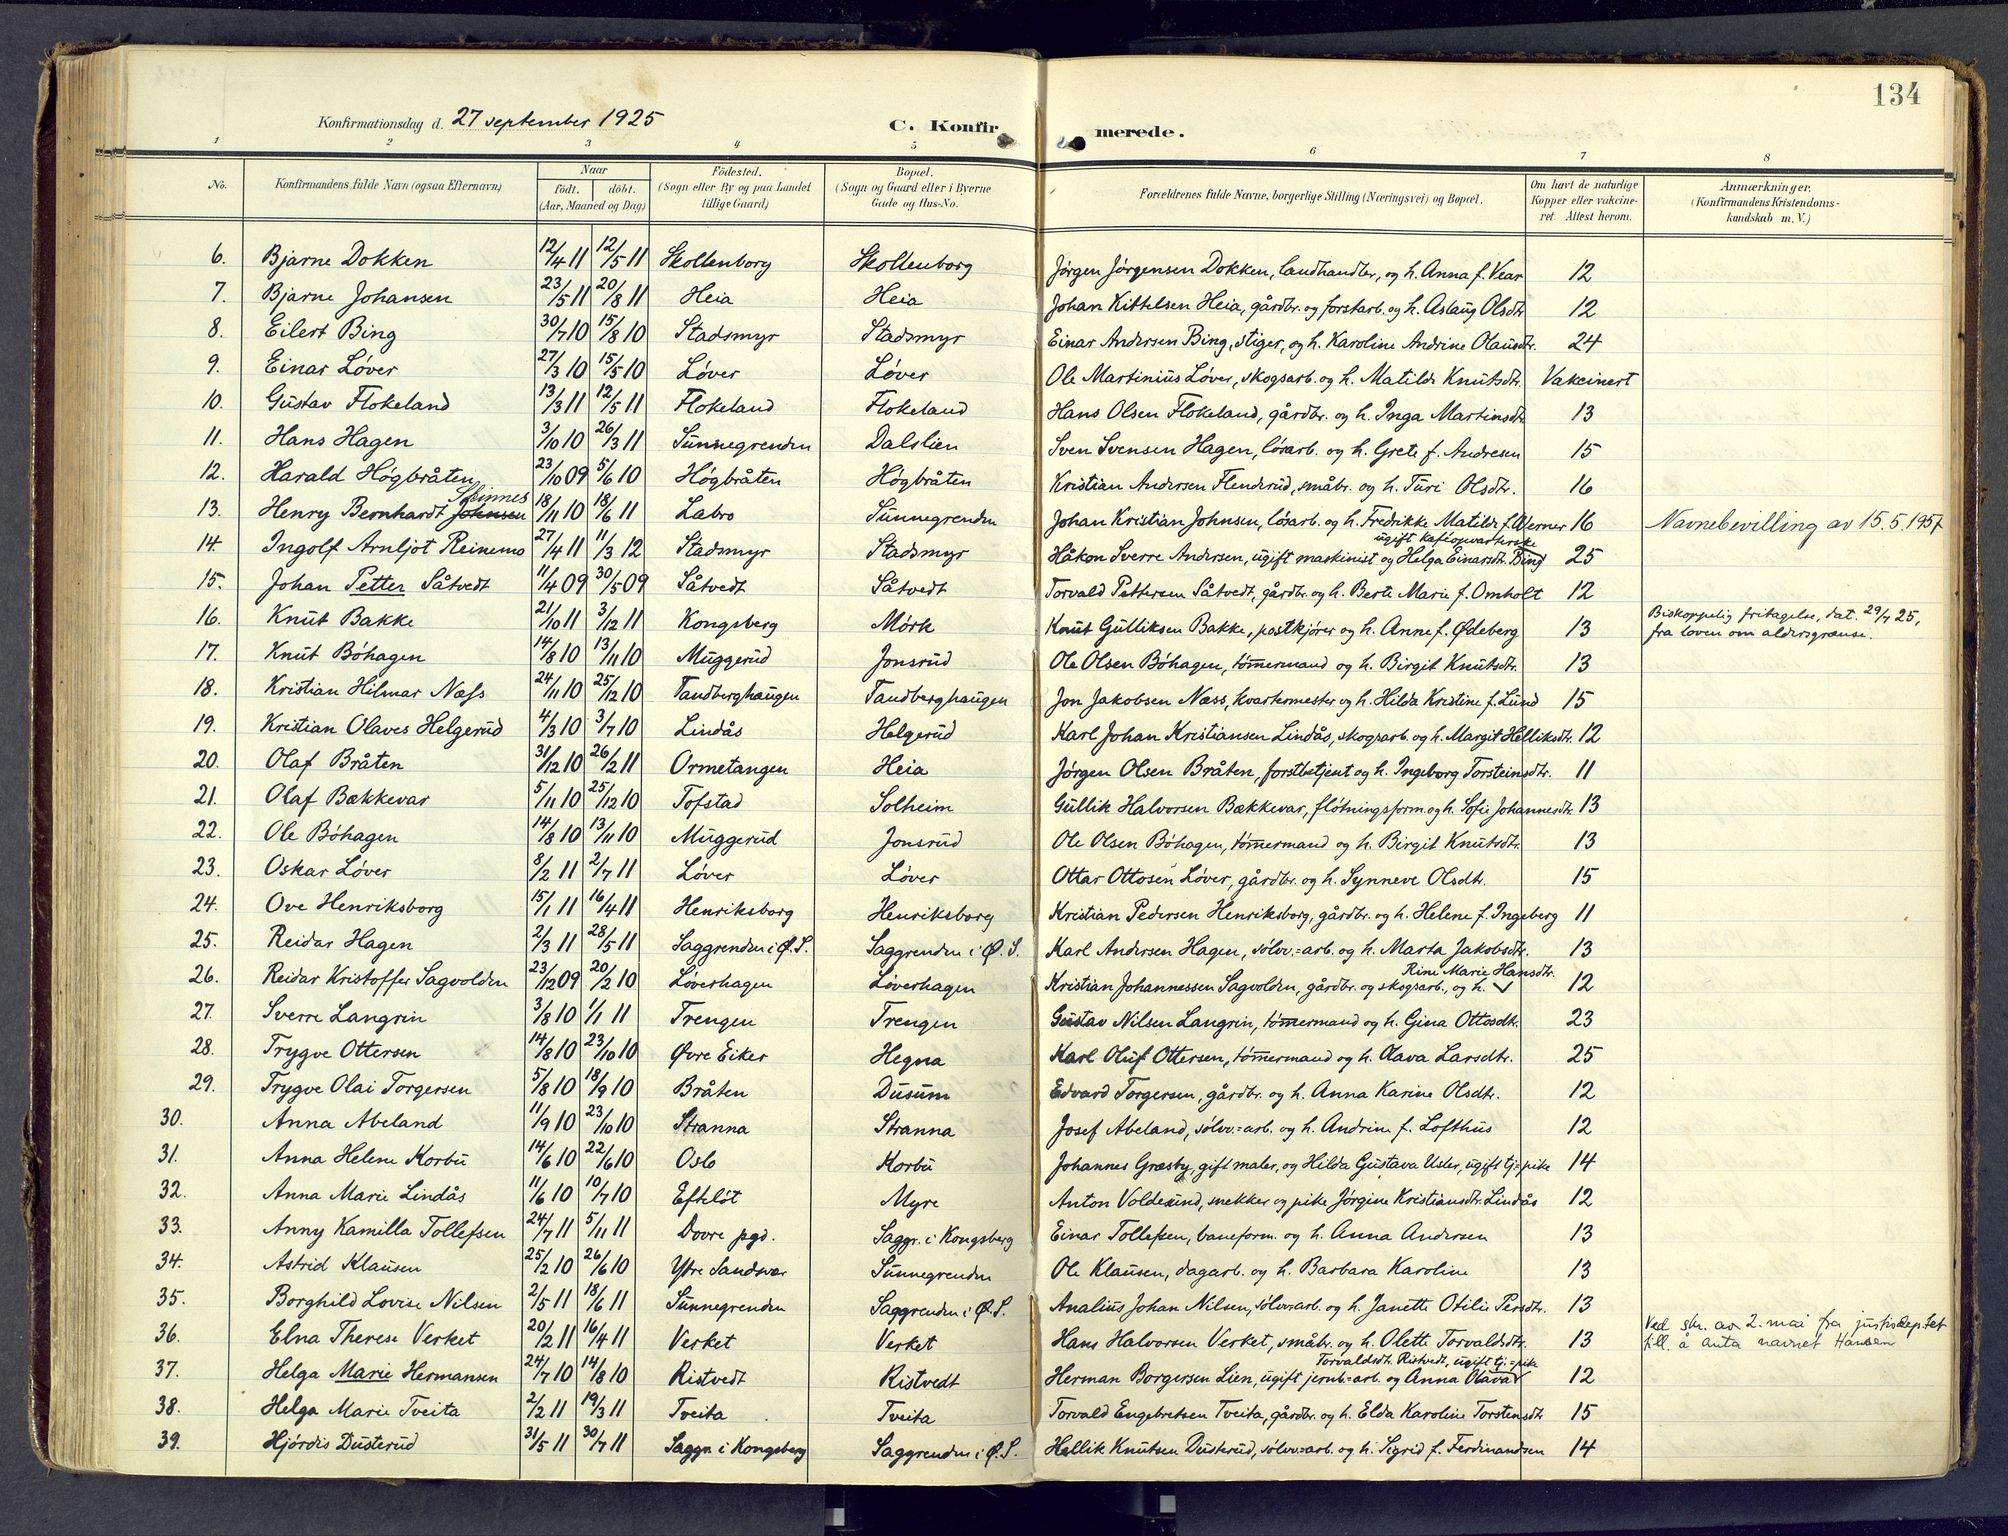 134
Konfirmationsdag d. 27 september 1925
C. Konfirmerede.
1 2 3 4 5 6 7 8
No. | Konfirmandens fulde Navn (ogsaa Efternavn) | Naar født. døbt. (Aar, Maaned og Dag) | Fødested. (Sogn eller By og paa Landet tillige Gaard) | Bopæl. (Sogn og Gaard eller i Byerne Gade og Hus-No. | Forældrenes fulde Navne, borgerlige Stilling (Næringsvei) og Bopæl. | Om havt de naturlige Kopper eller vakcineret. Attest herom. | Anmærkninger. (Konfirmandens Kristendomskundskab m. V.)
6. Bjarne Dokken 12/4 11 12/5 11 Skollenborg Skollenborg Jørgen Jørgensen Dokken, landhandler, og h. Anna f. Vear 12
7. Bjarne Johansen 23/5 11 20/8 11 Heia Heia Johan Kittelsen Heia, gårdbr. og forstarb. og h. Aslaug Olsdtr 12
8. Eilert Bing 30/7 10 15/8 10 Stadsmyr Stadsmyr Einar Andersen Bing, stiger, og h. Karoline Andrine Olausdtr. 24
9. Einar Løver 27/3 10 15/5 10 Løver Løver Ole Martinius Løver, skogsarb. og h. Matilde Knutsdtr. Vakcinert
10. Gustav Flokeland 13/3 11 12/5 11 Flokeland Flokeland Hans Olsen Flokeland, gårdbr. og h. Inga Martinsdtr 13
11. Hans Hagen 3/10 10 26/3 11 Sunnegrenden Dalslien Sven Svensen Hagen, løsarb. og h. Grete f. Andresen 15
12. Harald Högbråten 23/10 09 5/6 10 Högbråten Högbråten Kristian Andersen Flenderud, småbr. og h. Turi Olsdtr. 16
13. Henry Bernhardt Johnsen 18/11 10 18/6 11 Labro Sunnegrenden Johan Kristian Johnsen, løsarb. og h. Fredrikke Matilde f. Werner 16 Navnebevilling av 15.5.1957
14. Ingolf Arnljot Reinemo 27/4 11 11/3 12 Stadsmyr Stadsmyr Håkon Sverre Andersen, ugift maskinist og ugift kaféopvarterske Helga Einarsdtr. Bing 25
15. Johan Petter Såtvedt 11/4 09 30/5 09 Såtvedt Såtvedt Torvald Pettersen Såtvedt, gårdbr. og h. Berte Marie f. Omholt 12
16. Knut Bakke 21/10 11 3/12 11 Kongsberg Mørk Knut Gulliksen Bakke, postkjører og h. Anne f. Ødeberg 13 Biskoppelig fritagelse, dat. 29/7 25, fra loven om aldersgrænse.
17. Knut Böhagen 14/8 10 13/11 10 Muggerud Jonsrud Ole Olsen Böhagen, tømmermand og h. Birgit Knutsdtr. 13
18. Kristian Hilmar Næss 24/11 10 25/12 10 Tandberghaugen Tandberghaugen Jon Jakobsen Næss, kvartermester og h. Hilda Kristine f. Lund 15
19. Kristian Olaves Helgerud 4/3 10 3/7 10 Lindås Helgerud Karl Johan Kristiansen Lindås, skogsarb. og h. Margit Helliksdtr. 12
20. Olaf Bråten 31/12 10 26/2 11 Ormetangen Heia Jørgen Olsen Bråten, forstbetjent og h. Ingeborg Torsteinsdtr. 11
21. Olaf Bækkevar 5/11 10 25/12 10 Tofstad Solheim Gullik Halvorsen Bækkevar, fløtningsform. og h. Sofie Johannesdtr. 13
22. Ole Böhagen 14/8 10 13/11 10 Muggerud Jonsrud Ole Olsen Böhagen, tømmermand og h. Birgit Knutsdtr. 13
23. Oskar Løver 8/2 11 2/7 11 Løver Løver Ottar Ottosen Løver, gårdbr. og h. Synneve Olsdtr. 15
24. Ove Henriksborg 15/1 11 16/4 11 Henriksborg Henriksborg Kristian Pedersen Henriksborg, gårdbr. og h. Helene f. Ingeberg 11
25. Reidar Hagen 2/3 11 28/5 11 Saggrenden i Ø. S. Saggrenden i Ø. S. Karl Andersen Hagen, sølvv.=arb. og h. Marta Jakobsdtr. 13
26. Reidar Kristoffer Sagvolden 23/12 09 20/2 10 Løverhagen Løverhagen Kristian Johannessen Sagvolden, gårdbr. og skogsarb., og h. Rine Marie Hansdtr. 12
27. Sverre Langrin 3/8 10 1/1 11 Trengen Trengen Gustav Nilsen Langrin, tømmermand og h. Gina Ottosdtr. 23
28. Trygve Ottersen 14/8 10 23/10 10 Øvre Eiker Hegna Karl Oluf Ottersen, tømmermand og h. Olava Larsdtr. 25
29. Trygve Olai Torgersen 5/8 10 18/9 10 Bråten Dusum Edvard Torgersen, gårdbr. og h. Anna Karine Olsdtr. 12
30. Anna Abeland 11/9 10 23/10 10 Stranna Stranna Josef Abeland, sølvv.=arb. og h. Andrine f. Lofthus 12
31. Anna Helene Korbu 14/6 10 22/6 10 Oslo Korbu Johannes Græsby, gift maler, og Hilda Gustava Usler, ugift tj.=pike 14
32. Anna Marie Lindås 11/6 10 10/7 10 Efteløt Myre Anton Voldesund, snekker og pike Jørgine Kristiansdtr. Lindås 12
33. Anny Kamilla Tollefsen 24/7 11 5/11 11 Dovre pgd. Saggr. i Kongsberg Einar Tollefsen, baneform. og h. Anna Andersen 13
34. Astrid Klausen 25/2 10 26/6 10 Ytre Sandsvær Sunnegrenden Ole Klausen, dagarb. og h. Barbara Karoline 13
35. Borghild Lovise Nilsen 2/5 11 18/6 11 Sunnegrenden Saggrenden i Ø. S. Analius Johan Nilsen, sølvv.=arb. og h. Janette Otilie Persdtr. 13
36. Elna Therese Verket 20/2 11 16/4 11 Verket Verket Hans Halvorsen Verket, småbr. og h. Olette Torvaldsdtr. 13 Ved skr. av 2. mai fra justisdep.tet till. å anta navnet Hansen
37. Helga Marie Hermansen 24/7 10 14/8 10 Ristvedt Ristvedt Herman Borgersen Lien, ugift jernb.=arb. og Anna Olava Torvaldsdtr. Ristvedt, ugift tj.=pike 12
38. Helga Marie Tveita 2/2 11 19/3 11 Tveita Tveita Torvald Engebretsen Tveita, gårdbr. og h. Elda Karoline Torstensdtr 15
39. Hjördis Dusterud 31/5 11 30/7 11 Saggr. i Kongsberg Saggrenden i Ø. S. Hellik Knutsen Dusterud, sølvv.=arb. og h. Sigrid f. Ferdinandsen 14